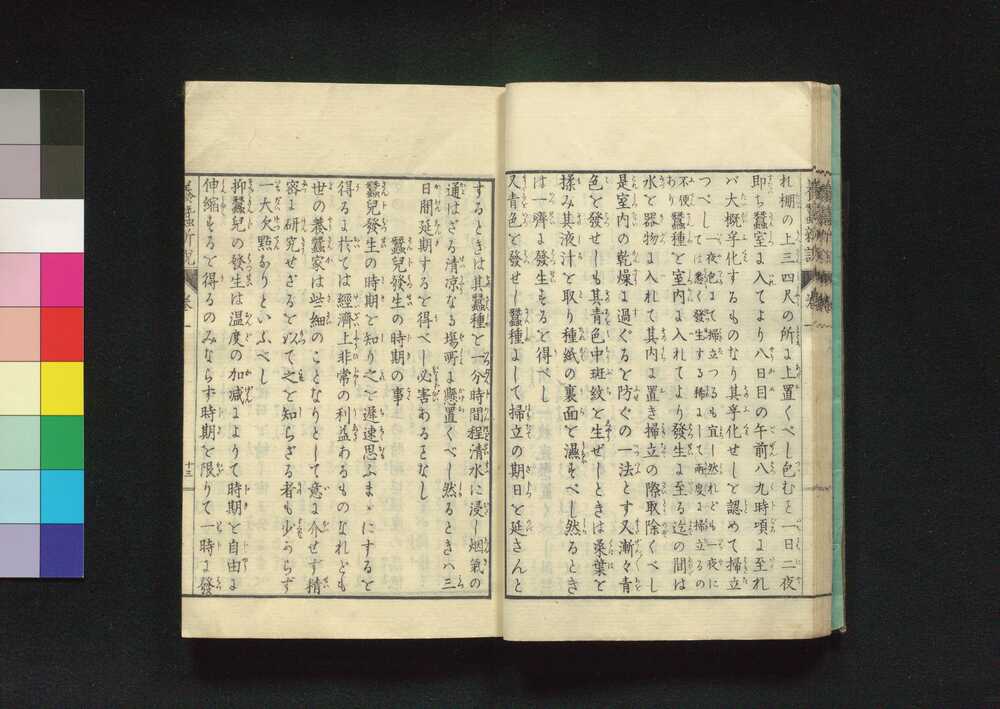 れ棚の上三四尺の所ょ上置くべし包むを一日二夜
即ち蠶室ょ入てより八日目の午前八九時頃ょ至れ
バ大概孚化するものなり其孚化せしを認めて掃立
つべし
一夜包ょて掃立つるも宜し然れども一夜に
ては悉く發生する稀ょして兩度ょ掃立るの
不便
あり
蠶種を室内ょ入れてより發生ょ至る迄の間は
水を器物ょ入れて其内ょ置き掃立の際取除くべし
是室内の乾燥ょ過ぐるを防ぐの一法とす又漸々青
色を發せしも其青色中斑紋を生ぜしときは桑葉を
揉み其液汁を取り種紙の裏面を濕すべし然るとき
は一齊ょ發生もるを得べし
又青色を發せし蠶種ょして掃立の期日を延さんと
するときは其蠶種を一分時間程清水に浸し烟氣の
通はざる清凉なる塲所ょ懸置くべし然るときハ三
日間延期するを得べし必害あるをなし
蠶兒發生の時期の事
蠶兒發生の時期を知り之を遲速思ふまゝにするを
得るょ於ては經濟上非常の利益あるものなれども
世の養蠶家は些細のことなりとして意ょ介せず精
容ょ研究せざるを以て之を知らざる者も少からず
一大欠點なりといふべし
抑蠶兒の發生は温度の加減ょよりて時期を自由ょ
伸縮もるを得るのみならず時期を限りて一時ょ發
十三